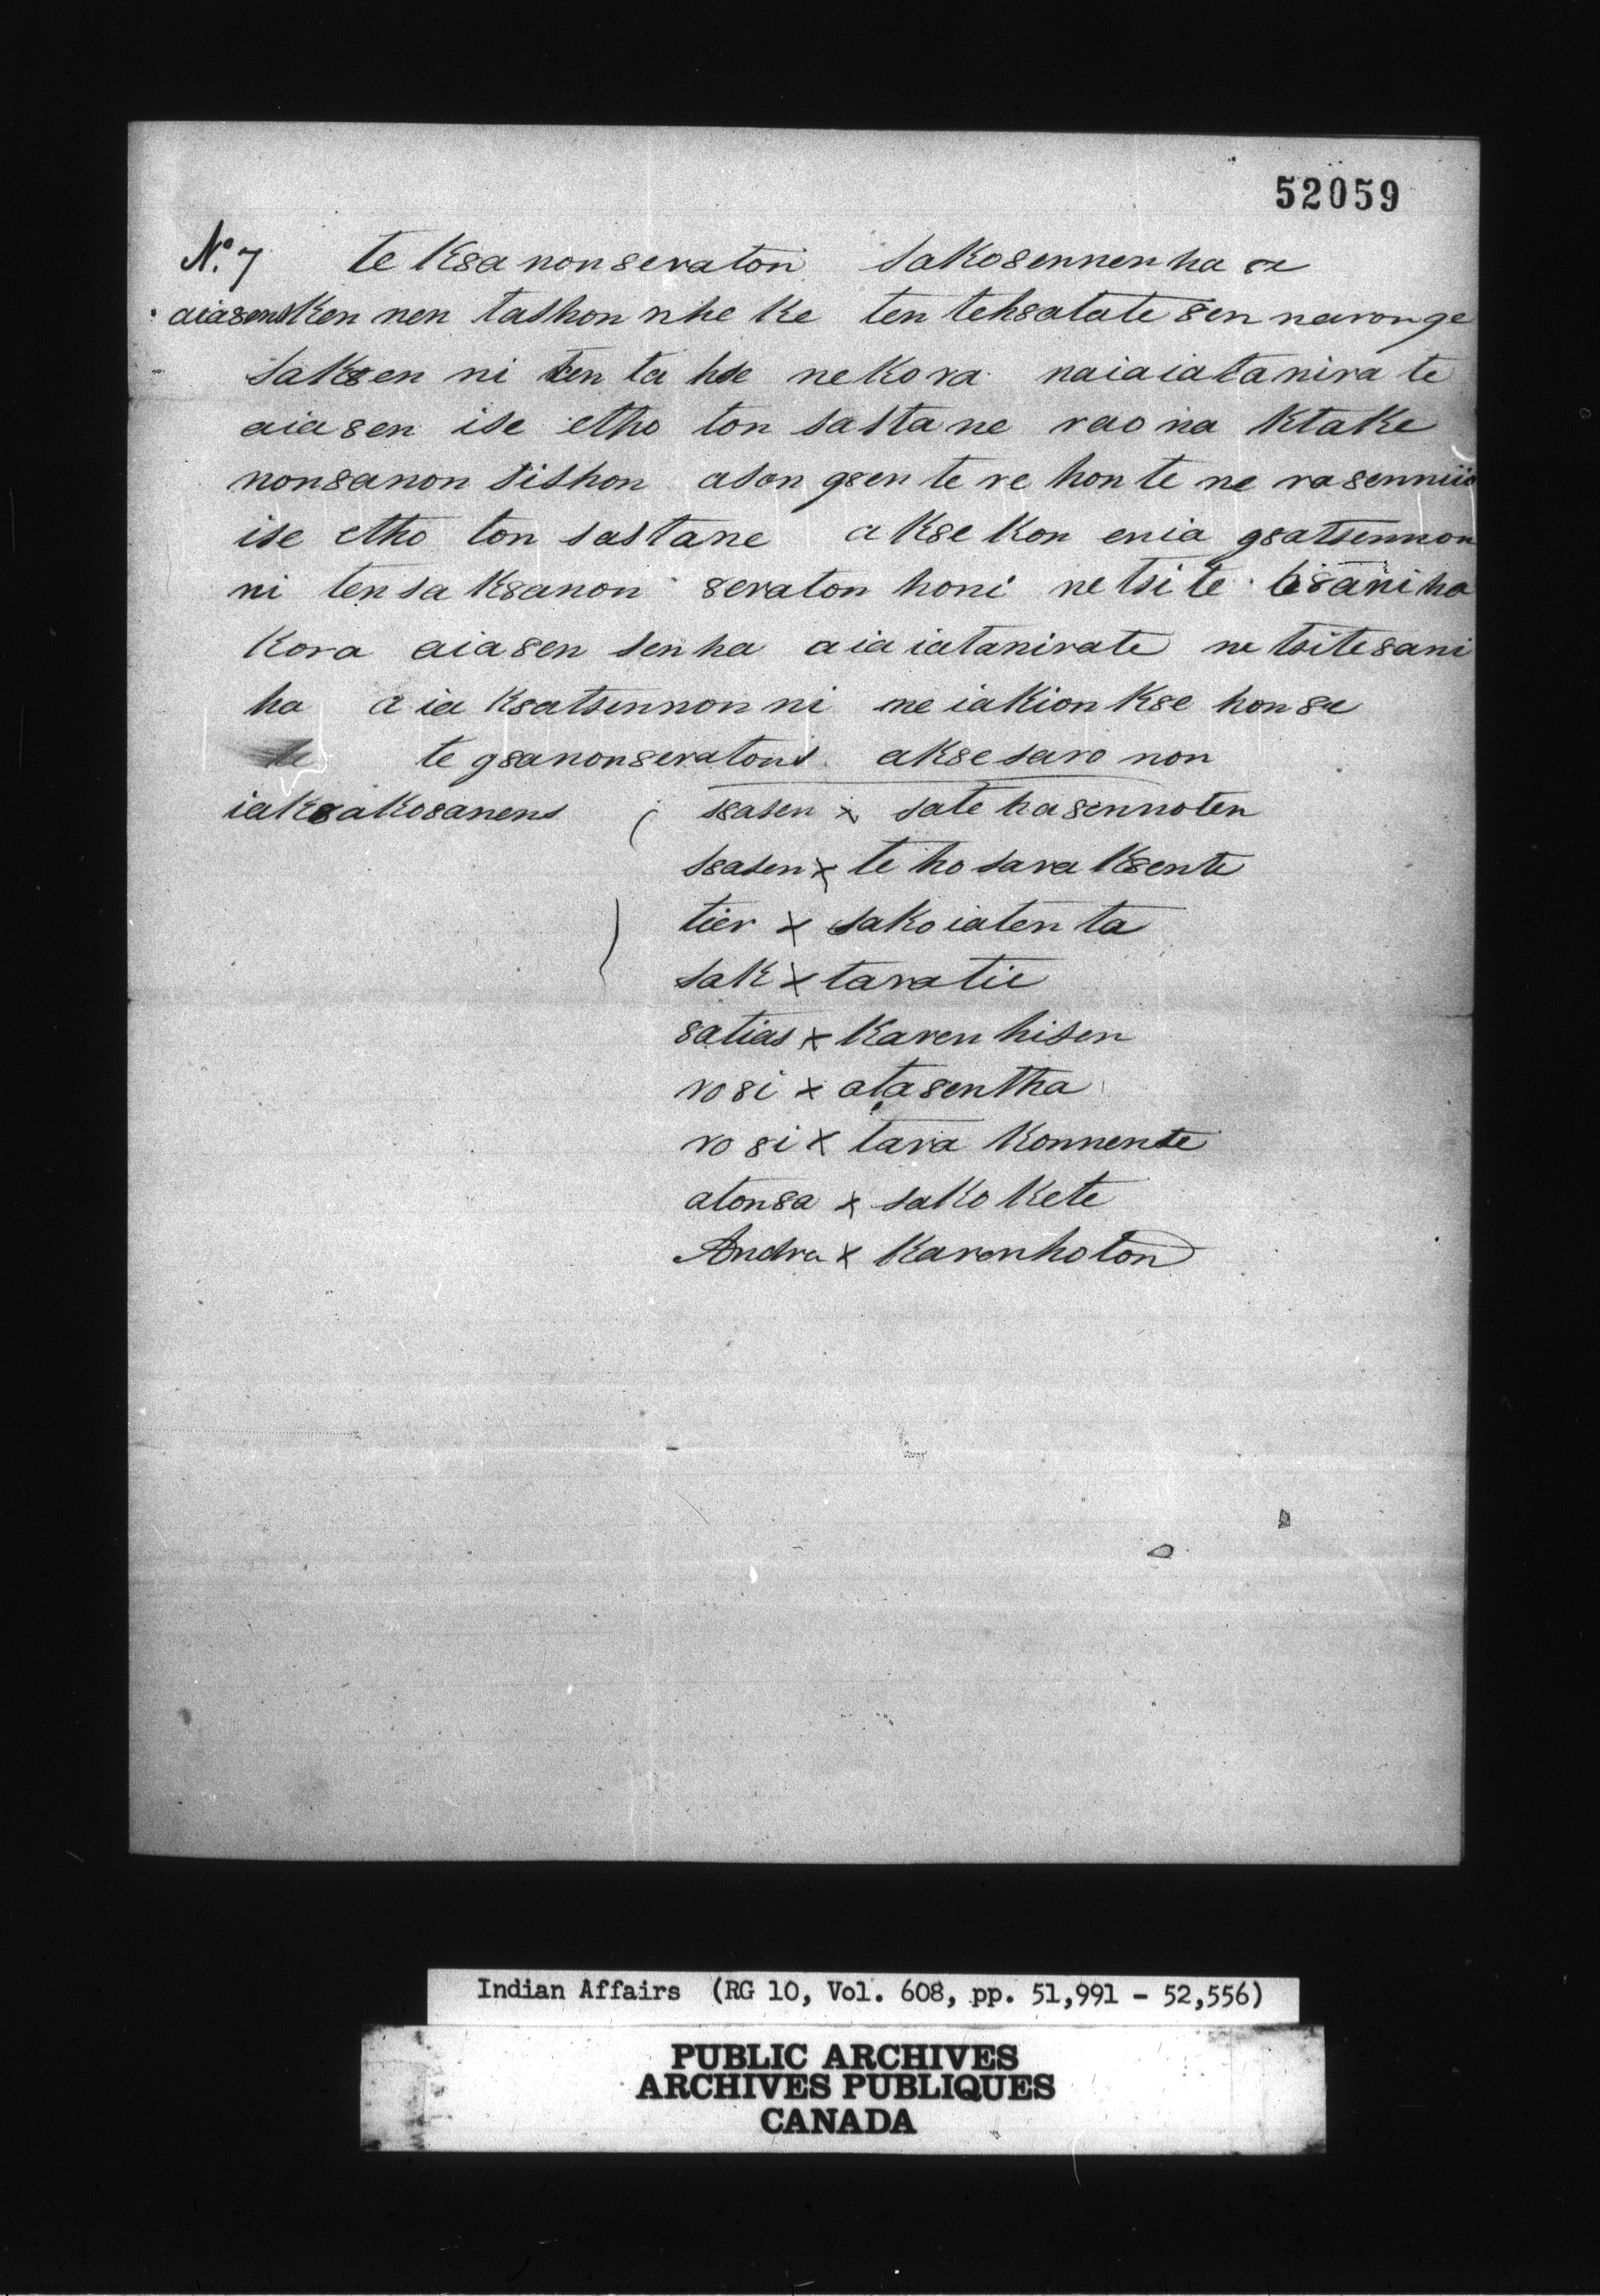 52059
No. 7 te K8a non8eraton sako8ennenha 8e
aia8ensken nen tashon nhe ke ten teh8atate8en naronge
sak8en ni ten ta hse ne kora naiaiatanirate
aia8en ise etho ton sastane raona ktake
non8anon sishon ason g8en te re hon te ne ra8enniio
ise etho ton sastane ak8ekon enia g8atsennon
ni tensa k8anon 8eraton honi netsite 8aniha
kora aia8en senha aiaiatanirate ne tsite8ani
ha aia k8atsennonni ne iakionk8e hon8e
te g8anon8eratons ak8esaro non
iak8ako8anens s8asen x sate ha8ennoten
s8asen x te ho sara k8ente
tier x sakoiatenta
sak x taratie
8atias x karenhisen
ro8i x ata8entha
ro8i x tara konnente
aton8a x sakokete
Andra x Karonhoton
Indian Affairs (RG 10, Vol. 608, pp. 51,991 - 52,556)
PUBLIC ARCHIVES
ARCHIVES PUBLIQUES
CANADA